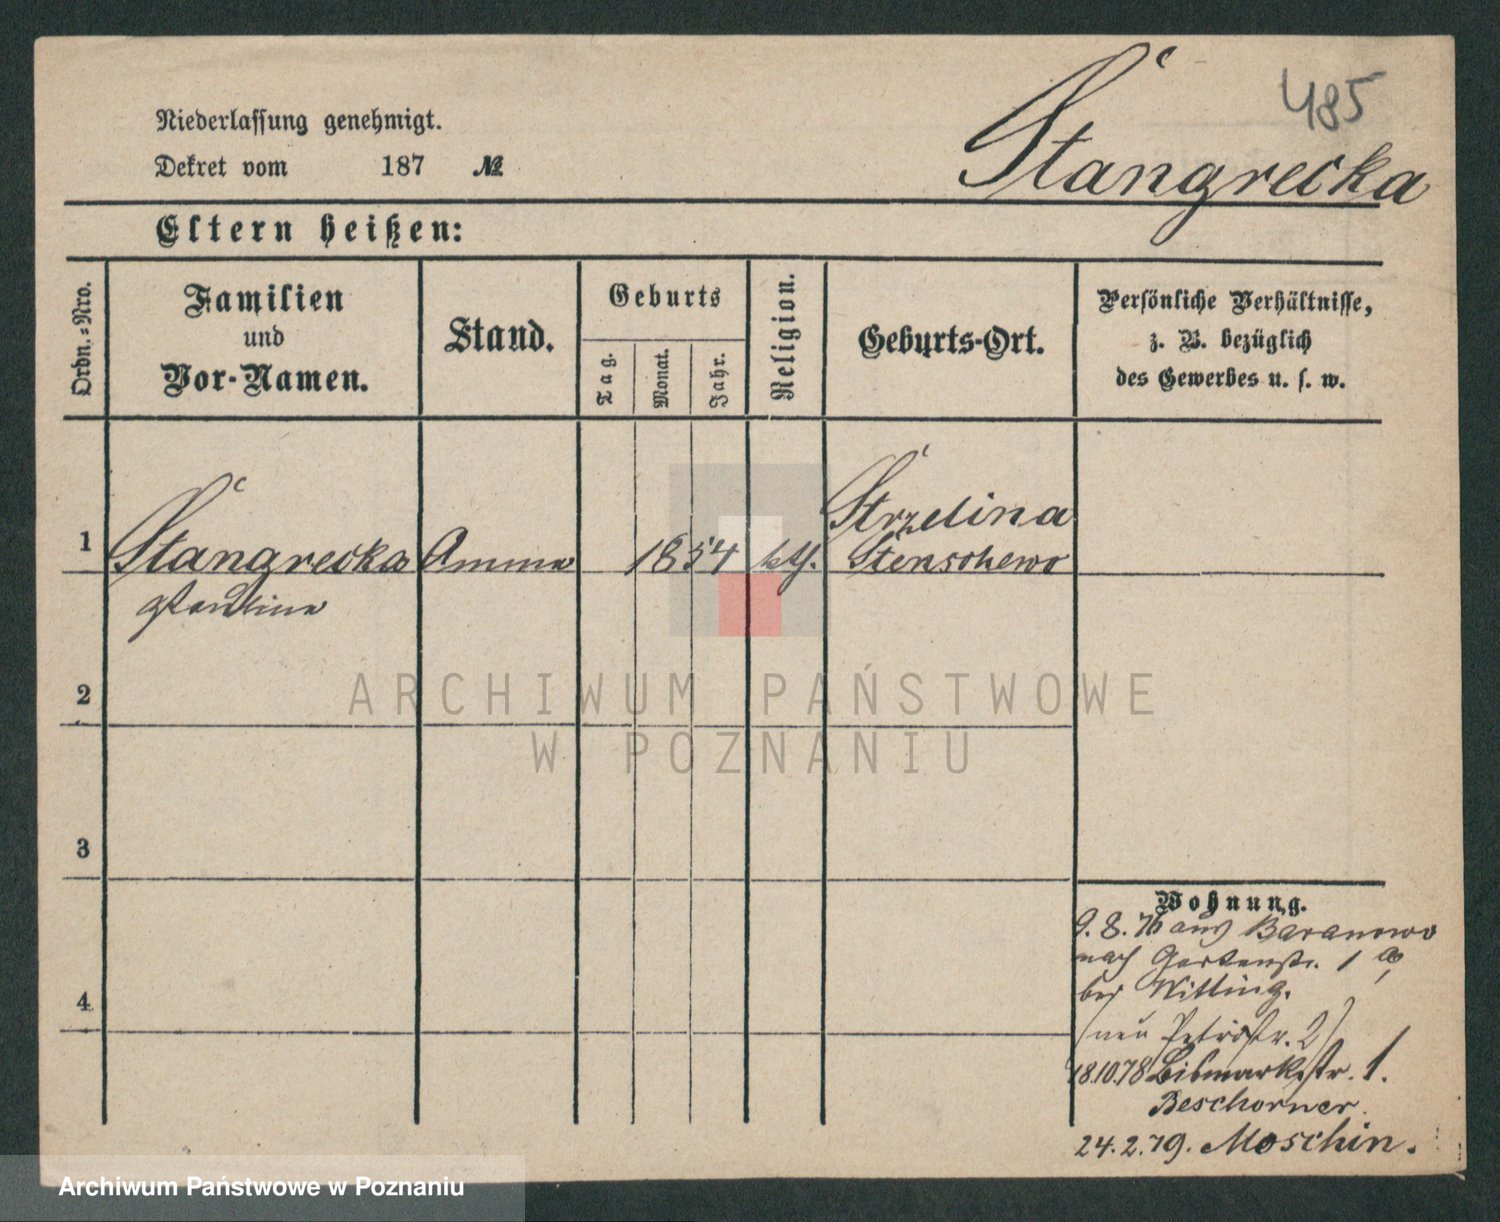 485
Niederlassung genehmigt.
Dekret vom 187 №
Stangrecka
Eltern heißen:
Ordn.-Nro.
Familien
und
Vor-Namen.
Stand.
Geburts
Tag.
Monat.
Jahr.
Religion.
Geburts-Ort.
Persönliche Verhältnisse,
z. B. bezüglich
des Gewerbes u. s. w.
Strzelina
1 Stangrecka Amme 1854 kth. Stenschewo
2
3
4
Wohnung.
9.8.76 aus Baranowo
nach Gartenstr. 1
bei Witting.
(neu Petristr. 2)
18.10.78 Bismarkstr. 1.
Beschorner.
24.2.79. Moschin.
ARCHIWUM PAŃSTWOWE
W POZNANIU
Archiwum Państwowe w Poznaniu